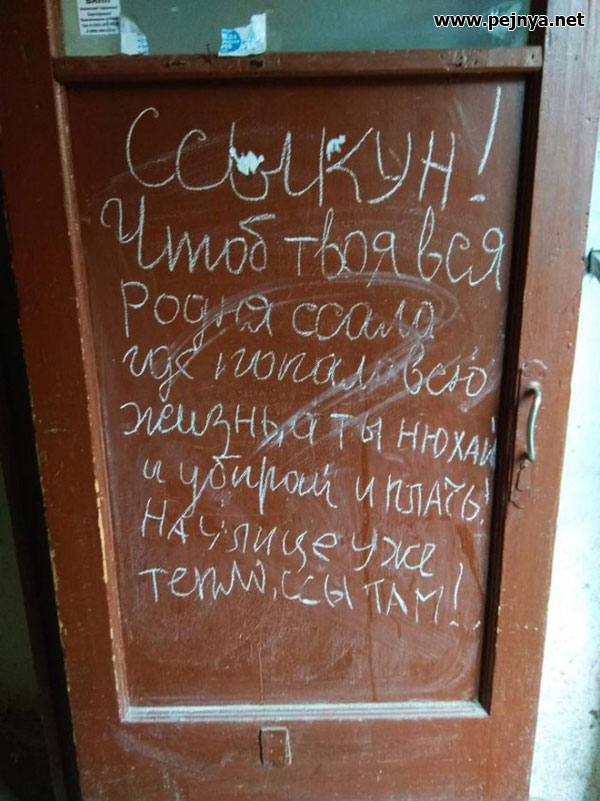 www.pejnya.net
Ссыкун!
Чтоб твоя вся
родня ссала
где попало всю
жизнь, а ты нюхай
и убирай и плачь!
На улице уже
тепло, ссы там!..